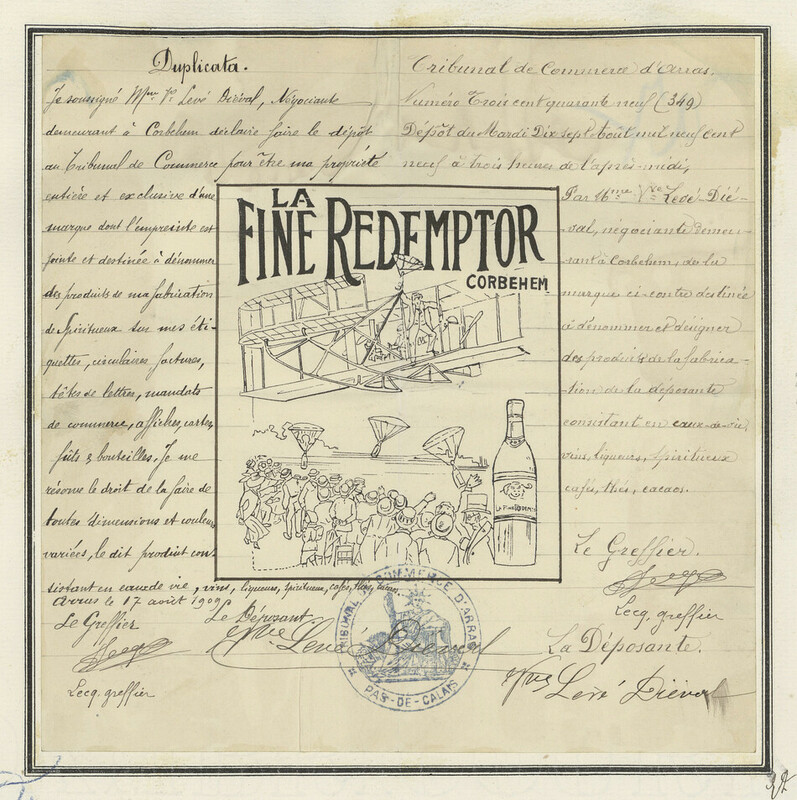 Duplicata.
Je soussigné Mme Vve Levé Diéval, Négociante
demeurant à Corbehem déclare faire le dépôt
au Tribunal de Commerce pour être ma propriété
entière et exclusive d'une
marque dont l'empreinte est
jointe et destinée à dénommer
des produits de ma fabrication
de Spiritueux sur mes éti-
quettes, circulaires, factures,
têtes de lettres, mandats
de commerce, affiches, cartes,
fûts & bouteilles. Je me
réserve le droit de la faire de
toutes dimensions et couleurs
variées, le dit produit con-
sistant en eaux de vie, vins, liqueurs, spiritueux, cafés, thés, cacaos.
Arras le 17 août 1909
Le Greffier
Lecq. greffier
Le Déposant
Vve Levé Diéval
LA
FINE REDEMPTOR
CORBEHEM
LA FINE REDEMPTOR
Tribunal de Commerce d'Arras.
Numéro Trois cent quarante neuf (349)
Dépôt du Mardi Dix sept Août mil neuf cent
neuf à trois heures de l'après-midi,
Par Mme Vve Levé-Dié-
val, négociante demeu-
rant à Corbehem, de la
marque ci-contre destinée
à dénommer et désigner
des produits de la fabrica-
tion de la déposante
consistant en eaux-de-vie,
vins, liqueurs, spiritueux
cafés, thés, cacaos.
Le Greffier.
Lecq. greffier
La Déposante.
Vve Levé Diéval
TRIBUNAL DE COMMERCE D'ARRAS
PAS-DE-CALAIS